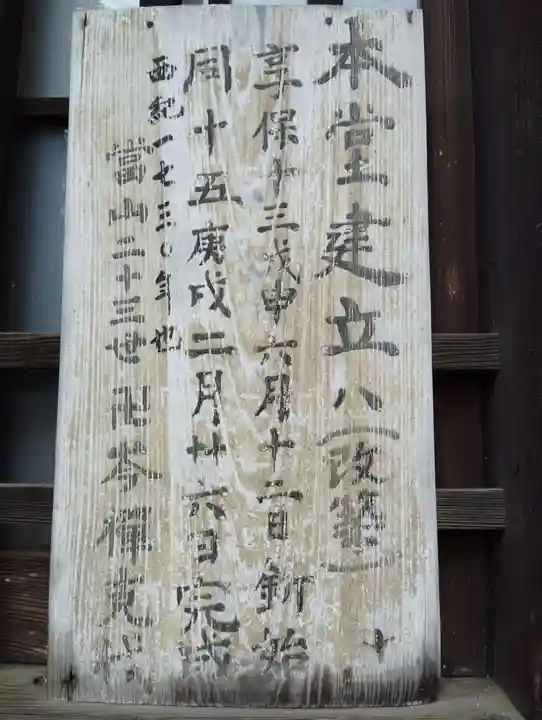 本堂建立ハ(改築)
享保十三戊申六月十二日釿始
同十五庚戌二月廿六日完成
西紀一七三〇年也
當山二十三世卍岑